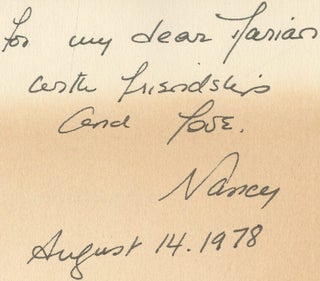 For my dear Marian
with friendship
and love.
Nancy
August 14.1978